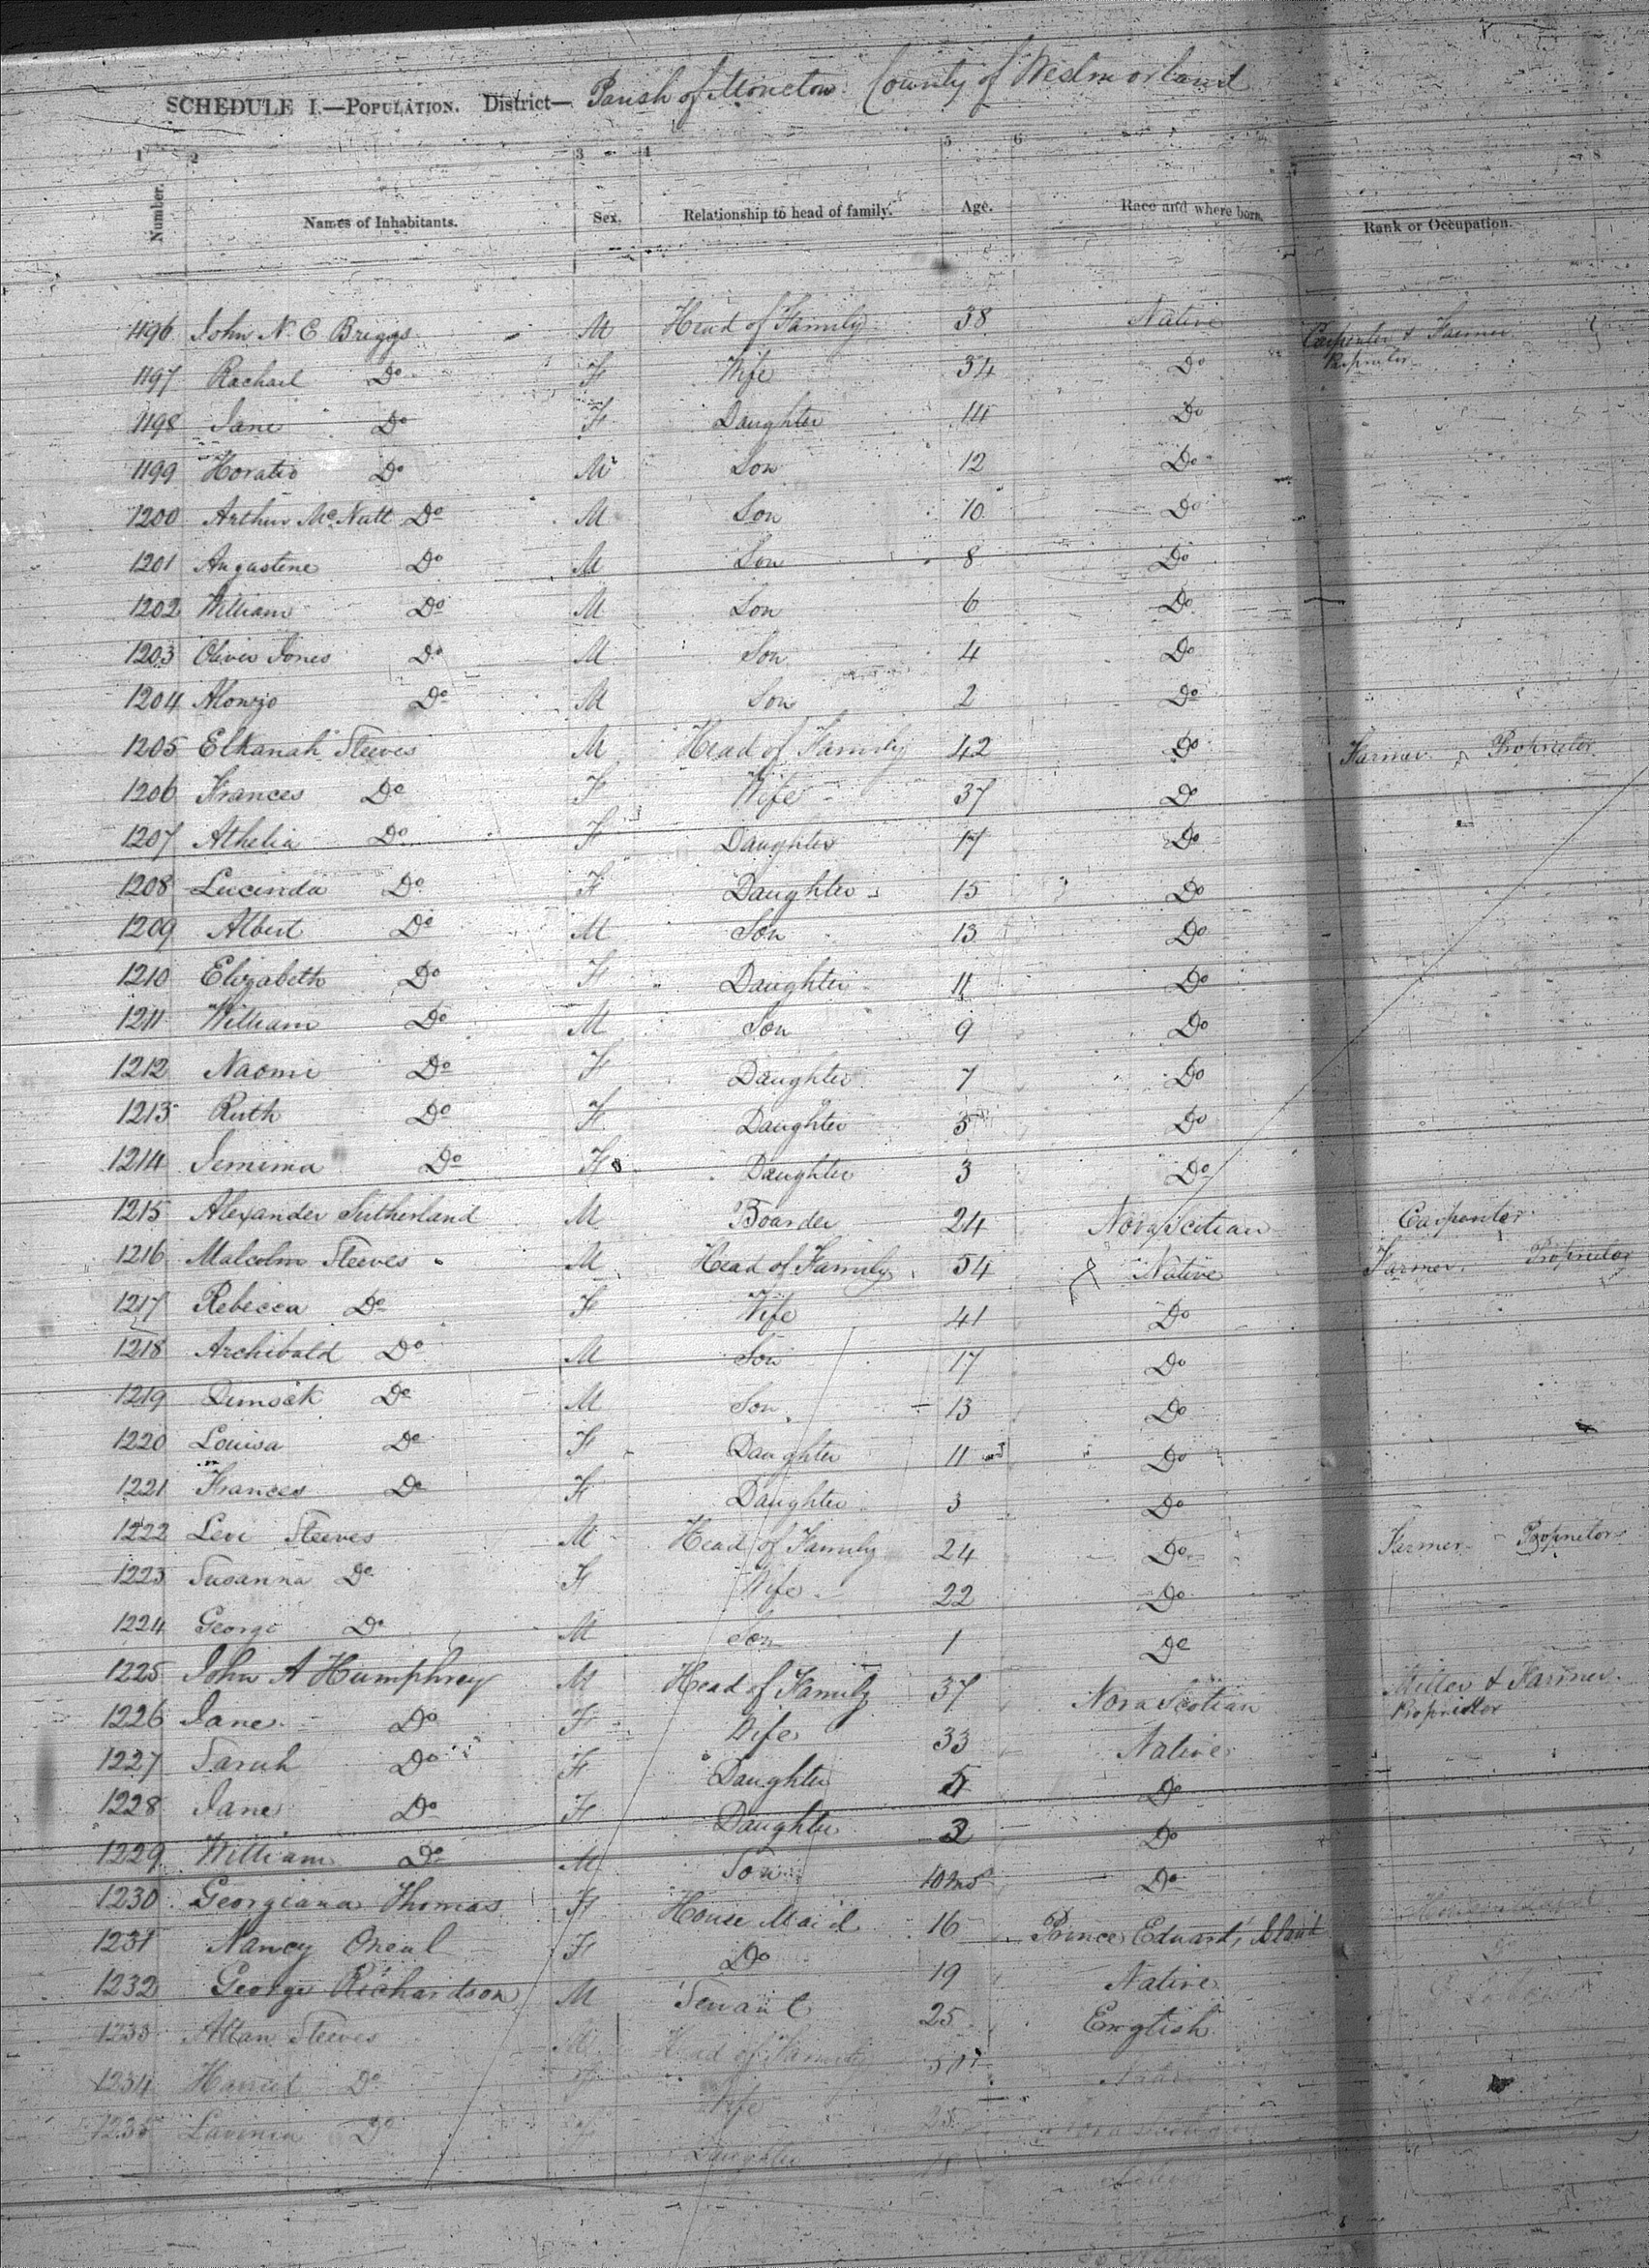 SCHEDULE I.—POPULATION. District— Parish of Moncton County of Westmorland
1 2 3 4 5 6 8
Number. Names of Inhabitants. Sex. Relationship to head of family. Age. Race and where born. Rank or Occupation.
1196 John N. E Briggs M Head of Family 38 Native Carpenter & Farmer
Proprietor
1197 Rachael Do F Wife 34 Do
1198 Jane Do F Daughter 14 Do
1199 Horatio Do M Son 12 Do
1200 Arthur McNutt Do M Son 10 Do
1201 Augastine Do M Son 8 Do
1202 William Do M Son 6 Do
1203 Oliver Jones Do M Son 4 Do
1204 Alonzo Do M Son 2 Do
1205 Elkanah Steeves M Head of Family 42 Do Farmer Proprietor
1206 Frances Do F Wife 37 Do
1207 Athelia Do F Daughter 17 Do
1208 Lucinda Do F Daughter 15 Do
1209 Albert Do M Son 13 Do
1210 Elizabeth Do F Daughter 11 Do
1211 William Do M Son 9 Do
1212 Naomi Do F Daughter 7 Do
1213 Ruth Do F Daughter 5 Do
1214 Jemima Do F Daughter 3 Do
1215 Alexander Sutherland M Boarder 24 Nova Scotian Carpenter
1216 Malcolm Steeves M Head of Family 54 Native Farmer Proprietor
1217 Rebecca Do F Wife 41 Do
1218 Archibald Do M Son 17 Do
1219 Dimock Do M Son 13 Do
1220 Louisa Do F Daughter 11 Do
1221 Frances Do F Daughter 3 Do
1222 Levi Steeves M Head of Family 24 Do Farmer Proprietor
1223 Susanna Do F Wife 22 Do
1224 George Do M Son 1 Do
1225 John A Humphrey M Head of Family 37 Nova Scotian Miller & Farmer
Proprietor
1226 Jane Do F Wife 33 Native
1227 Sarah Do F Daughter 5 Do
1228 Jane Do F Daughter 2 Do
1229 William Do M Son 10 ms Do
1230 Georgiana Thomas F House Maid 16 Prince Edward Island House Maid
1231 Nancy Oneal F Do 19 Native Do
1232 George Richardson M Servant 25 English
1233 Allan Steeves M Head of Family Native
1234 Harriet Do F Wife Nova Scotian
1235 Lavinia Do F Daughter Native